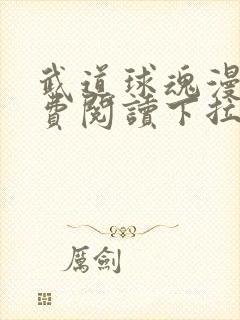 武道球魂漫
費閱讀下拉
厲劍